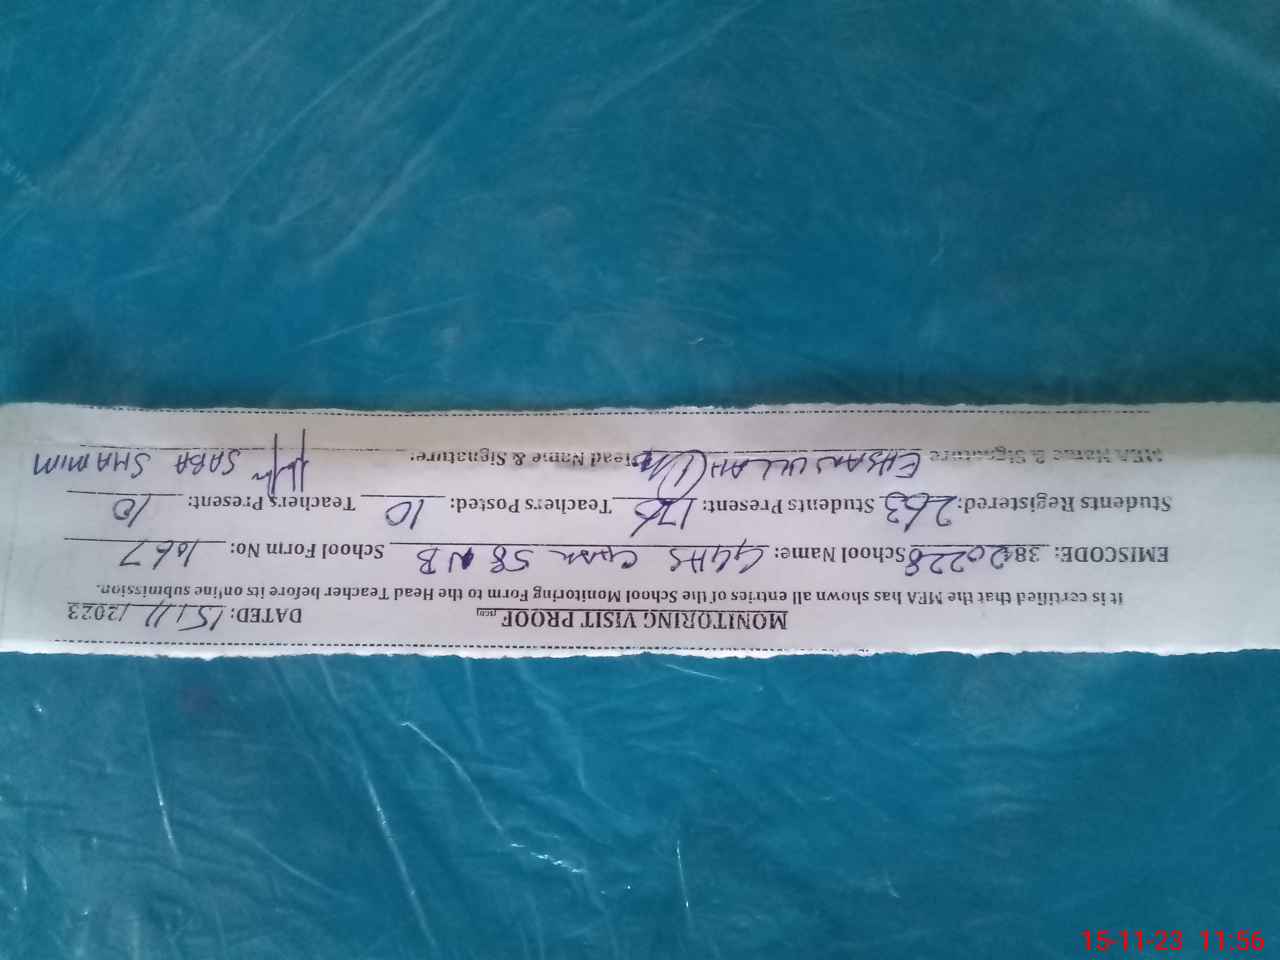 MONITORING VISIT PROOF DATED: 15/11/2023
It is certified that the MEA has shown all entries of the School Monitoring Form to the Head Teacher before its online submission.
EMISCODE: 38420228 School Name: GGHS Chak 58 NB School Form No: 1067
Students Registered: 263 Students Present: 176 Teachers Posted: 10 Teachers Present: 10
MEA Name & Signature EHSAN ULLAH Head Name & Signature: SABA SHAMIM
15-11-23 11:56